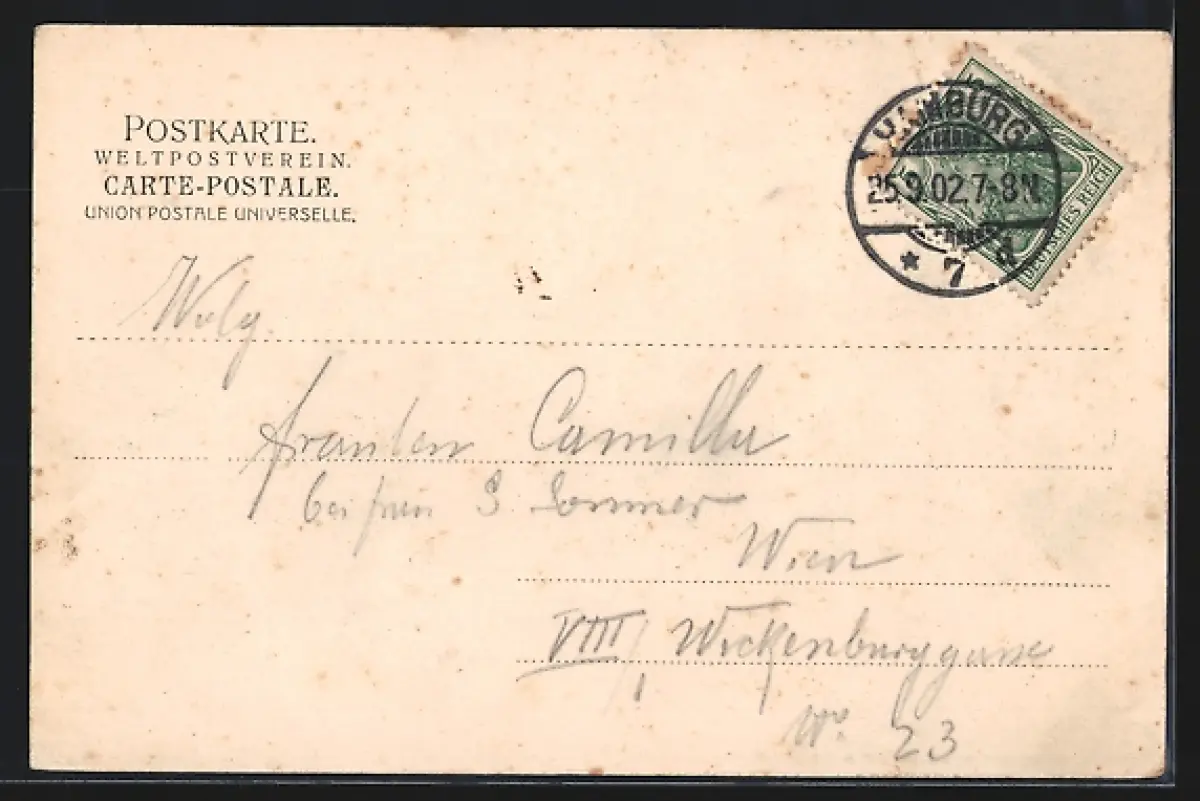 POSTKARTE.
WELTPOSTVEREIN.
CARTE-POSTALE.
UNION POSTALE UNIVERSELLE.
HAMBURG
25.9.02.7-8N.
* 7 d
DEUTSCHES REICH
Wolg.
Fräulein Camilla
bei Frau S Sommer
Wien
VIII/1 Wickenburggasse
No. 23